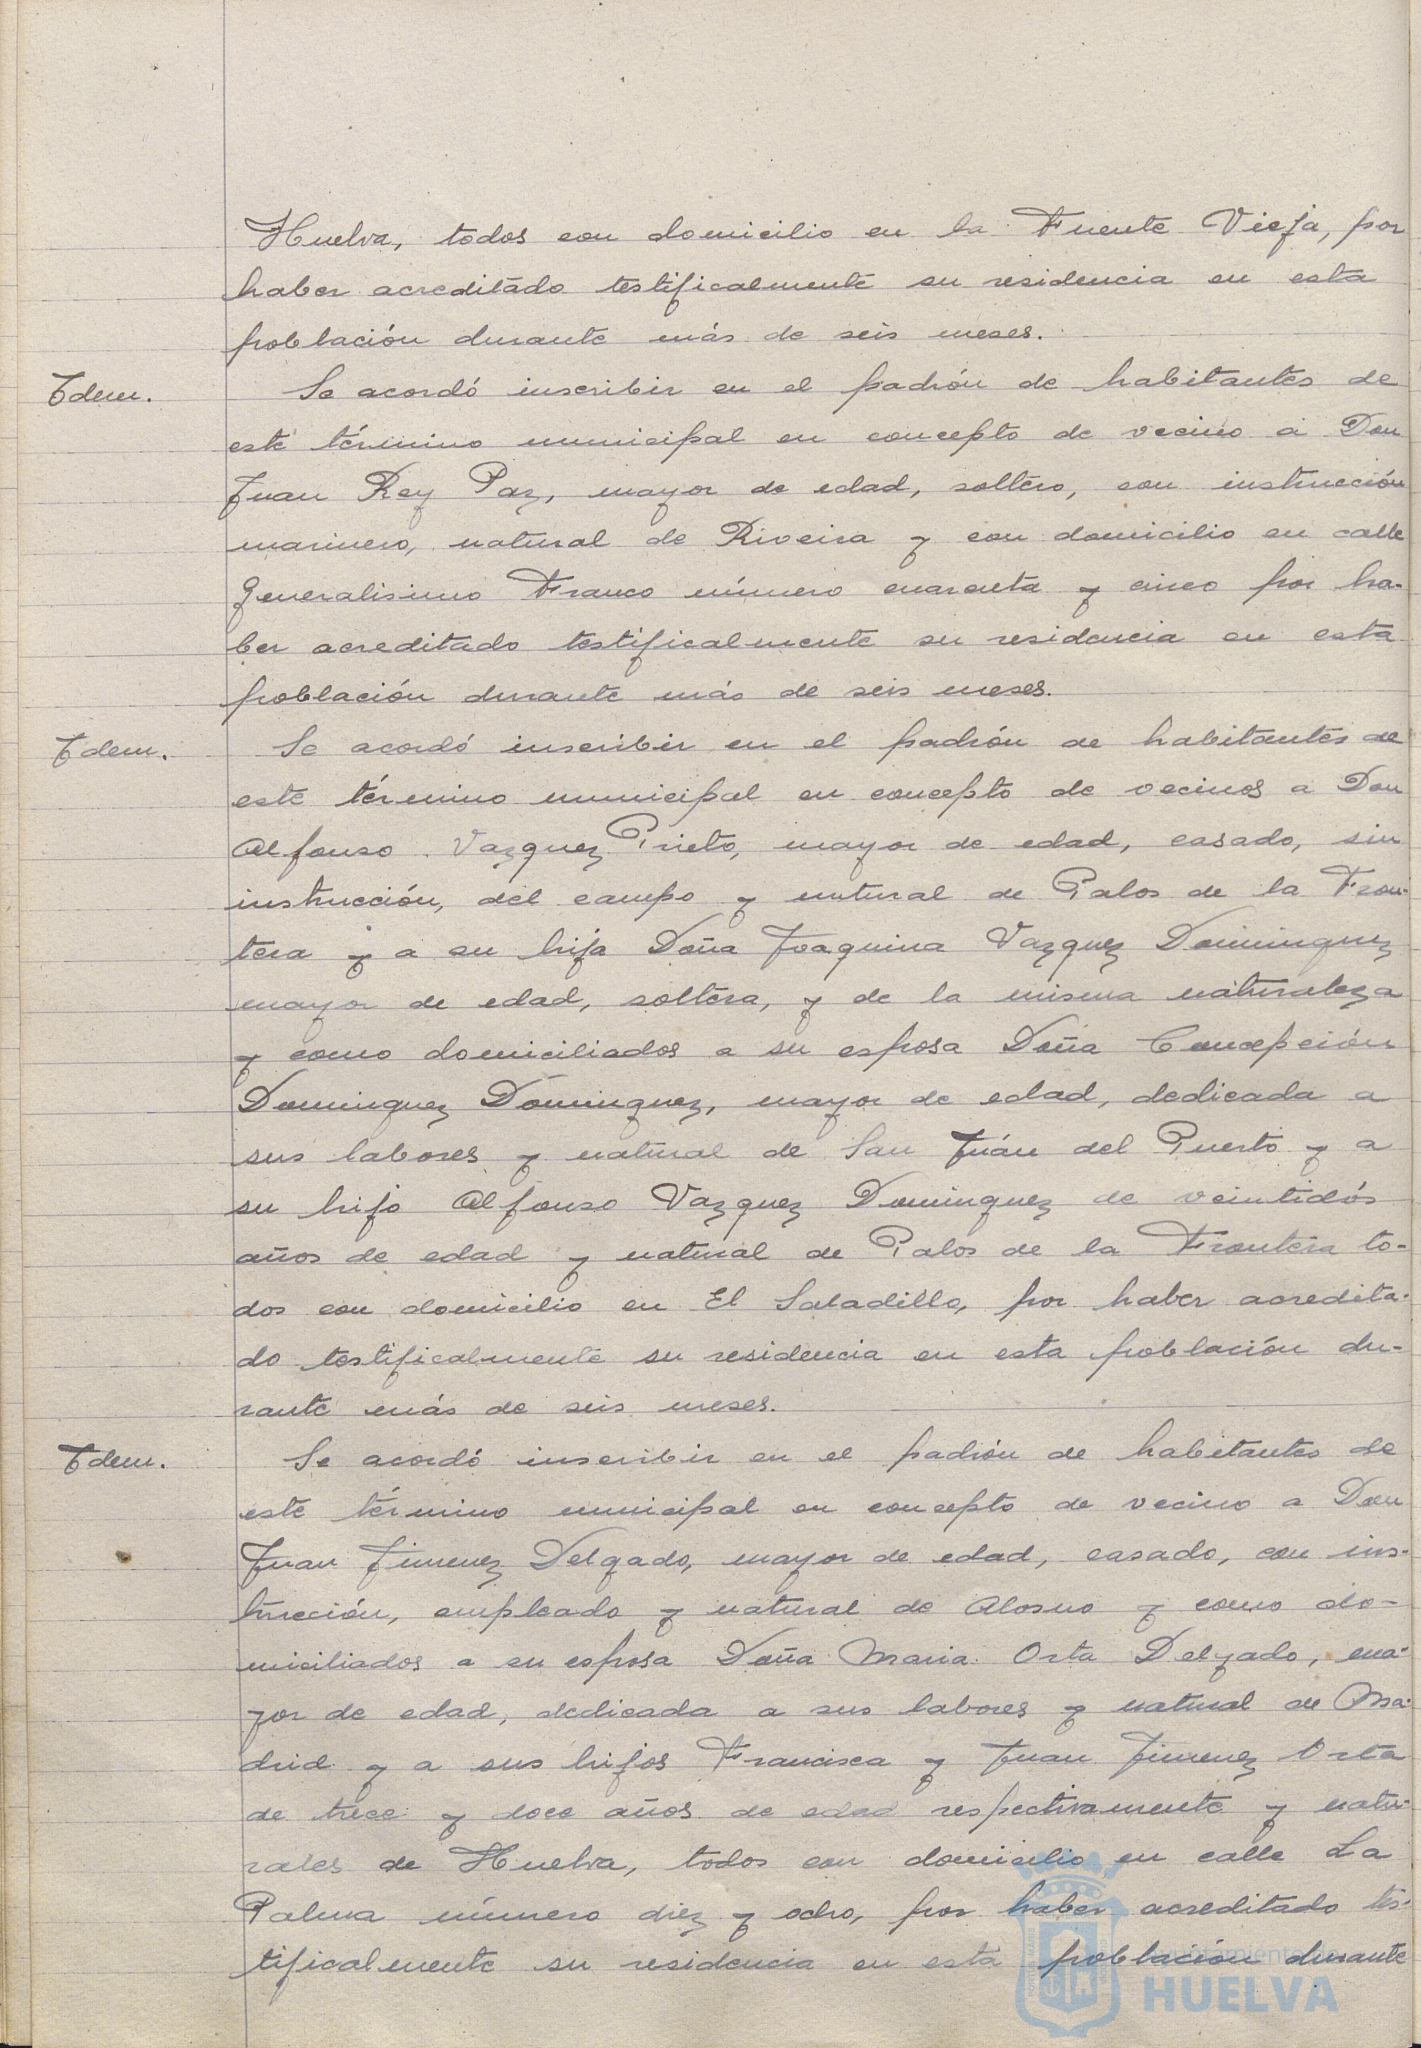 Huelva, todos con domicilio en la Fuente Vieja, por
haber acreditado testificalmente su residencia en esta
población durante más de seis meses.
Idem.
Se acordó inscribir en el padrón de habitantes de
este término municipal en concepto de vecino a Don
Juan Rey Paz, mayor de edad, soltero, con instrucción
marinero, natural de Riveira y con domicilio en calle
Generalisimo Franco número cuarenta y cinco por ha-
ber acreditado testificalmente su residencia en esta
población durante más de seis meses.
Idem.
Se acordó inscribir en el padrón de habitantes de
este término municipal en concepto de vecinos a Don
Alfonso Vazquez Prieto, mayor de edad, casado, sin
instrucción, del campo y natural de Palos de la Fron-
tera y a su hija Doña Joaquina Vazquez Dominguez
mayor de edad, soltera, y de la misma naturaleza
y como domiciliados a su esposa Doña Concepción
Dominguez Dominguez, mayor de edad, dedicada a
sus labores y natural de San Juán del Puerto y a
su hijo Alfonso Vazquez Dominguez de veintidós
años de edad y natural de Palos de la Frontera to-
dos con domicilio en El Saladillo, por haber acredita-
do testificalmente su residencia en esta población du-
rante más de seis meses.
Idem.
Se acordó inscribir en el padrón de habitantes de
este término municipal en concepto de vecino a Don
Juan Jimenez Delgado, mayor de edad, casado, con ins-
trucción, empleado y natural de Alosno y como do-
miciliados a su esposa Doña Maria Orta Delgado, ma-
yor de edad, dedicada a sus labores y natural de Ma-
drid y a sus hijos Francisca y Juan Jimenez Orta
de trece y doce años de edad respectivamente y natu-
rales de Huelva, todos con domicilio en calle La
Palma número diez y ocho, por haber acreditado tes-
tificalmente su residencia en esta población durante
Ayuntamiento de
HUELVA